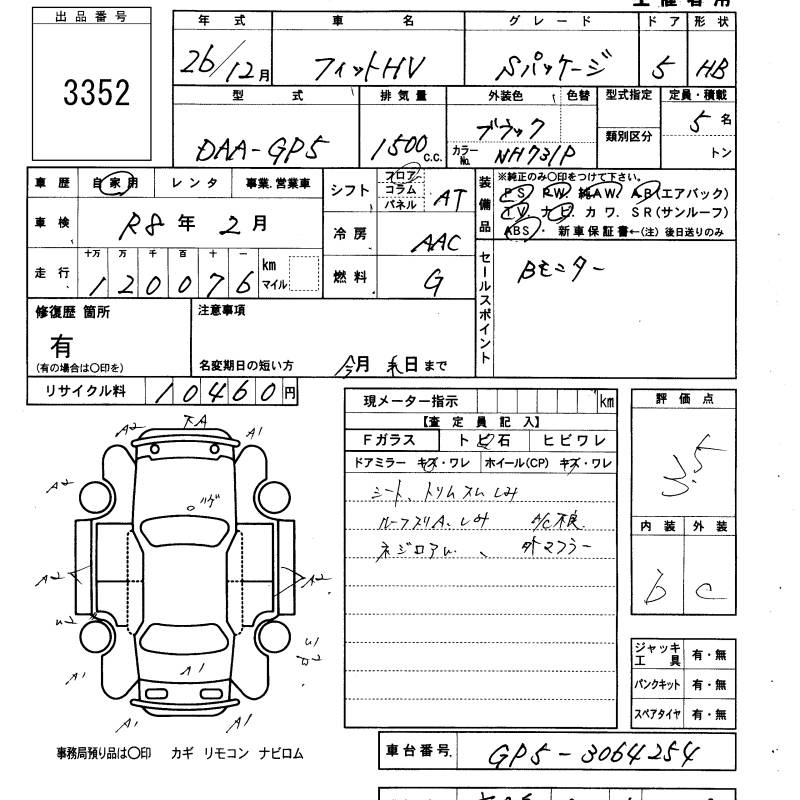 出品番号
3352
年式 車名 グレード ドア 形状
26/12月 フィットHV Sパッケージ 5 HB
型式 排気量 外装色 色替 型式指定 定員・積載
DAA-GP5 1500c.c. ブラック 類別区分 5名
カラーNo. NH731P トン
車歴 自家用 レンタ 事業.営業車
シフト フロア コラム パネル AT
装備品 ※純正のみ〇印をつけて下さい。
PS PW 純AW AB(エアバック)
TV ナビ カワ SR(サンルーフ)
ABS・ 新車保証書←(注) 後日送りのみ
車検 R8年 2月
冷房 AAC
走行 十万 万 千 百 十 一
120076 km マイル
燃料 G
セールスポイント Bモニター
修復歴 箇所
有
(有の場合は〇印を)
注意事項
名変期日の短い方 今月 末日まで
リサイクル料 10460円
現メーター指示 km
評価点
3.5
【査定員記入】
Fガラス トビ石 ヒビワレ
ドアミラー キズ・ワレ ホイール(CP) キズ・ワレ
シート、トリムスムしみ
ルーフスリA、しみ A/C不良
内装 外装
b C
下A
A2 A1
A2
A2 A2
A1
A1
A1 A1
ジャッキ工具 有・無
パンクキット 有・無
スペアタイヤ 有・無
事務局預り品は〇印 カギ リモコン ナビロム
車台番号 GP5-3064254